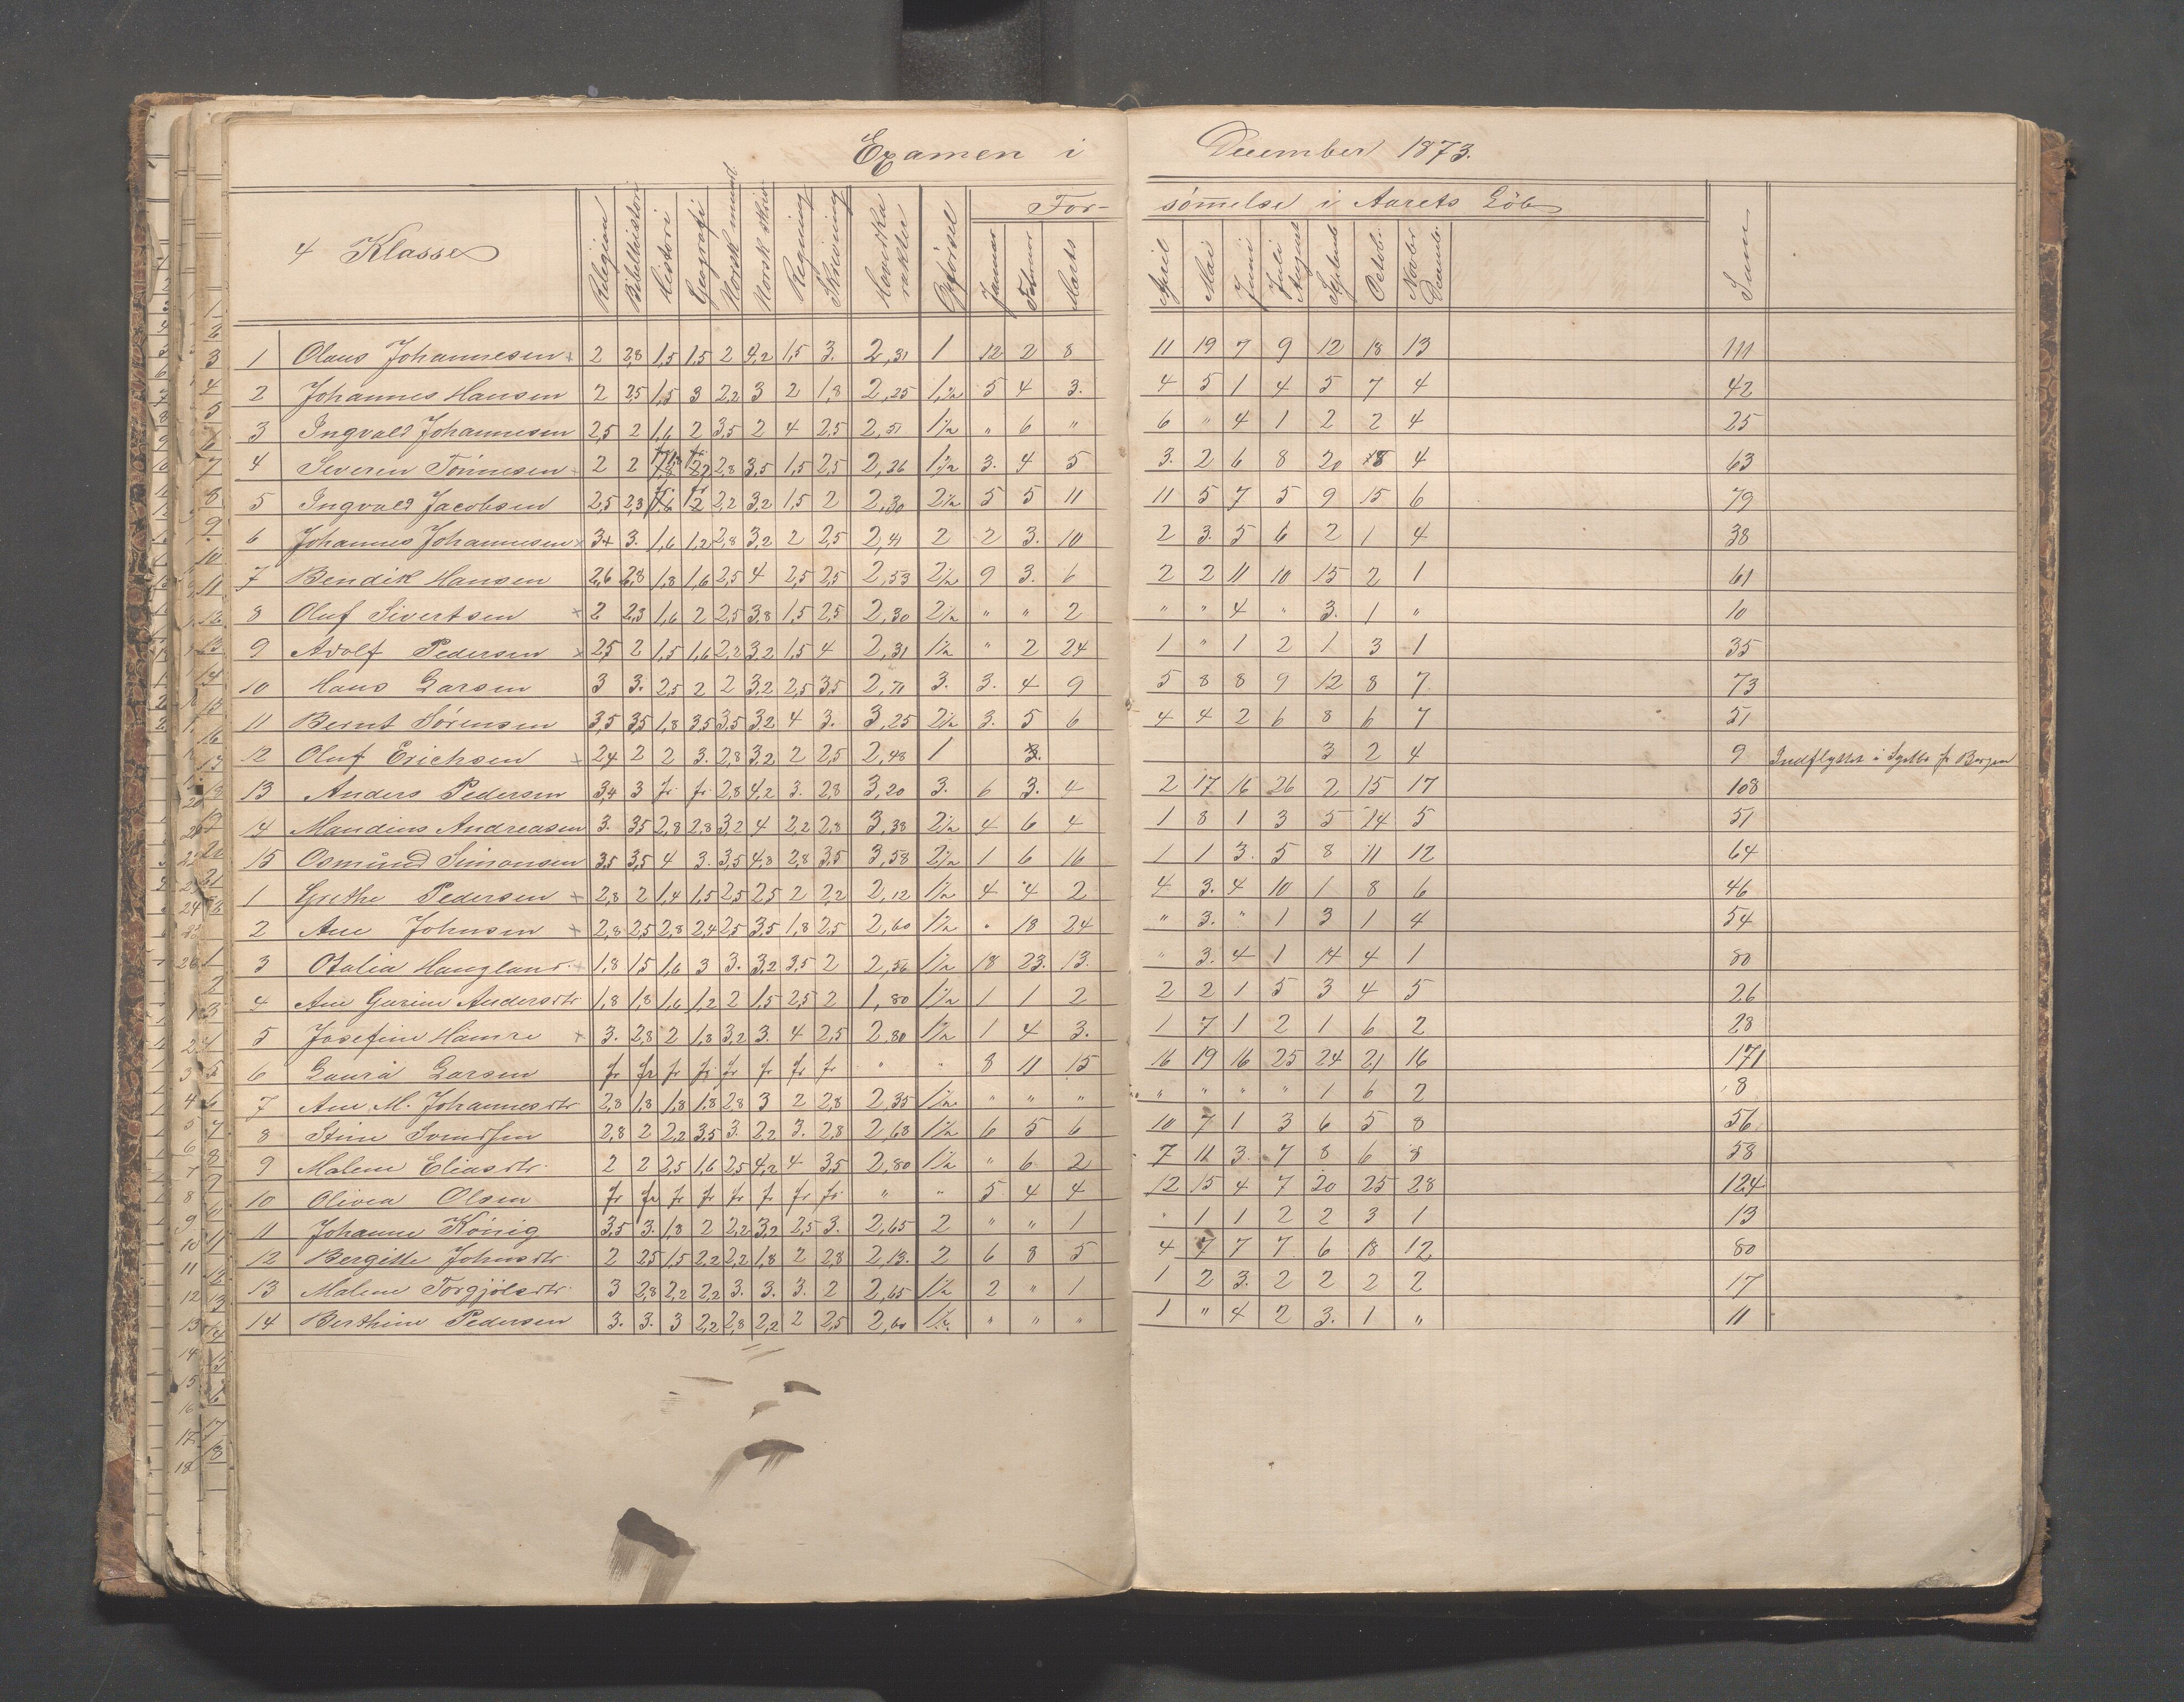 Examen i December 1873.
4 Klasse Religion Bibelhistori Histori Geografi Norsk mundt Norsk skriv Regning Skrivning Hovedka rakter Opførsel For- sømmelse i Aarets Løb Sum
Januar Februar Marts April Mai Juni Juli August Septemb Octob. Novbr Decemb.
1 Olaus Johannesen + 2 2,8 1,5 1,5 2 4,2 1,5 3. 2,31 1 12 2 8 11 19 7 9 12 18 13 111
2 Johannes Hansen 2 2,5 1,5 3 2,2 3 2 1,8 2,25 1 1/2 5 4 3. 4 5 1 4 5 7 4 42
3 Ingvald Johannesen 2,5 2 1,6 2 3,5 2 4 2,5 2,51 1 1/2 " 6 " 6 " 4 1 2 2 4 25
4 Severin Tönnesen 2 2 2,8 3,5 1,5 2,5 2,26 1 1/2 3. 4 5 3. 2 6 8 20 8 4 63
5 Ingvald Jacobsen 2,5 2,3 2,2 3,2 1,5 2 2,30 2 1/2 5 5 11 11 5 7 5 9 15 6 79
6 Johannes Johannesen + 3+ 3. 1,6 1,2 2,8 3,2 2 2,5 2,41 2 2 3. 10 2 3. 5 6 2 1 4 38
7 Bendik Hansen 2,6 2,8 1,8 1,6 2,5 4 2,5 2,5 2,53 2 1/2 9 3. 6 2 2 11 10 15 2 1 61
8 Oluf Sivertsen + 2 2,3 1,6 2 2,5 3,8 1,5 2,5 2,30 2 1/2 " " 2 " " 4 " 3. 1 " 10
9 Adolf Pedersen + 2,5 2 1,5 1,6 2,2 3,2 1,5 4 2,31 1 1/2 " 2 24 1 " 1 2 1 3 1 35
10 Hans Larsen 3 3. 2,5 2 2 3,2 2,5 3,5 2,71 3. 3. 4 9 5 8 8 9 12 8 7 73
11 Bernt Sørensen 3,5 3,5 1,8 3,5 3,5 3,2 4 3. 3,25 2 1/2 3. 5 6 4 4 2 6 8 6 7 51
12 Oluf Erichsen + 2,4 2 2 3. 2,8 3,2 2 2,5 2,48 1 3. 3 2 4 9 Indflyttet i Septbr fr Bergen
13 Anders Pedersen 3,4 3 fr. fr. 2,8 4,2 3. 2,8 3,20 3. 6 3. 4 2 17 16 26 2 15 17 108
14 Mandius Andreasen 3. 3,5 2,8 2,8 3,2 4 2,2 2,8 3,38 2 1/2 4 6 4 1 8 1 3 5 14 5 51
15 Osmund Simonsen 3,5 3,5 4 3. 3,5 4,8 2,8 3,5 3,58 2 1/2 1 6 16 1 1 3. 5 8 11 12 64
1 Grethe Pedersen + 2,8 2 1,4 1,5 2,5 2,5 2 2,2 2,12 1 1/2 4 4 2 4 3. 4 10 1 8 6 46
2 Ane Johnsen + 2,8 2,5 2,8 2,4 2,5 3,5 1,8 2,5 2,60 1 1/2 " 18 24 " 3. " 1 3 1 4 54
3 Otalia Haugland + 1,8 1,5 1,6 3 3. 3,2 3,5 2 2,56 1 1/2 18 23. 13. " 3. 4 1 14 4 1 80
4 Ane Gurine Andersdtr 1,8 1,8 1,6 1,2 2 1,5 2,5 2 1,80 1 1/2 1 1 2 2 2 1 5 3 4 5 26
5 Josefine Hamre + 3. 2,8 2 1,8 3,2 3. 4 2,5 2,80 1 1/2 1 4 3. 1 7 1 2 1 6 2 28
6 Laura Larsen fr fr fr fr fr fr fr fr " " 8 11 15 16 19 16 25 24 21 16 171
7 Ane M. Johannesdtr 2,8 1,8 1,8 1,8 2,8 3 2 2,8 2,35 1 1/2 " " " " " " " 1 6 2 8
8 Stine Svendsen 2,8 2 2,2 3,5 3. 2,2 3. 2,8 2,68 1 1/2 6 5 6 10 7 1 3 6 5 8 56
9 Malene Eliasdtr. 2 2 2,5 1,6 2,5 4,2 4 3,5 2,80 1 1/2 " 6 2 7 11 3. 7 8 6 8 58
10 Olivea Olsen fr fr fr fr fr fr fr fr " " 5 4 4 12 15 4 7 20 25 28 124
11 Johanne König 3,5 3. 1,8 2 2,2 3,2 2,5 3. 2,65 2 " " 1 " 1 1 2 2 3 1 13
12 Bergitte Johnsdtr. 2 2,5 1,5 2,2 2,2 1,8 2 2,8 2,13. 2 6 8 5 4 7 7 7 6 18 12 80
13 Malene Torgjolsdtr. 3 2,8 2,2 2,2 3. 3. 3. 2 2,65 1 1/2 2 " 1 1 2 3. 2 2 2 2 17
14 Berthine Pedersen 3. 3. 3 2,2 2,8 2,2 2 2,5 2,60 1 1/2 " " " 1 " 4 2 3. 1 " 11